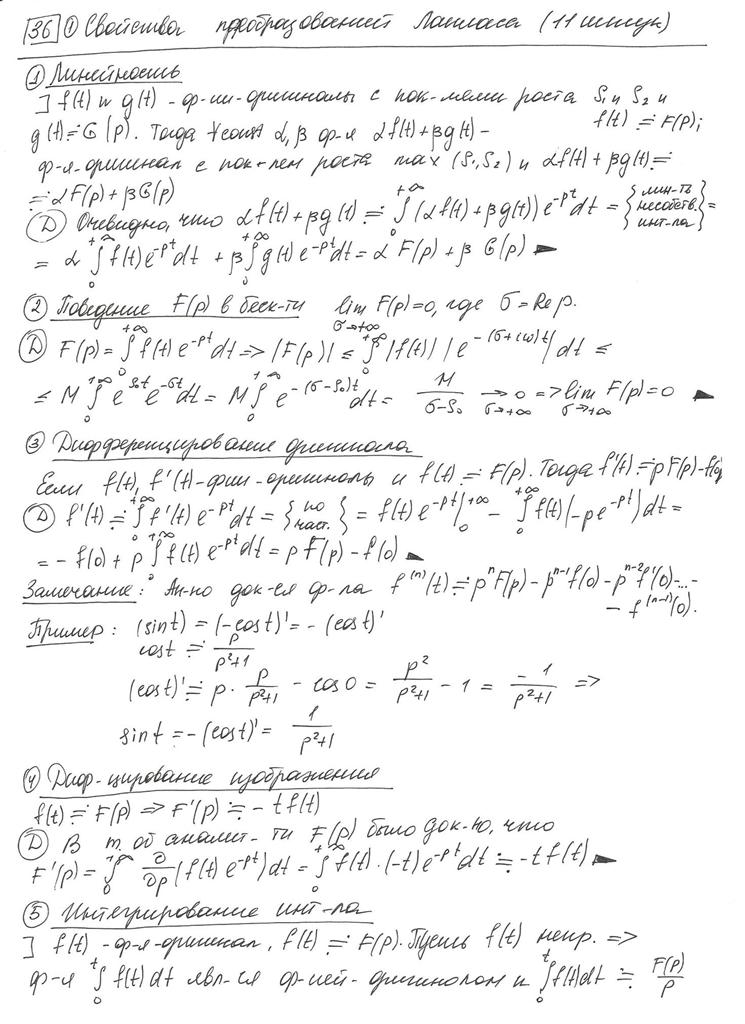 36 ① Свойства преобразований Лапласа (11 штук)
① Линейность
] f(t) и g(t) - ф-ии-оригиналы с пок-лями роста S₁ и S₂ и f(t) ≓ F(p);
g(t) ≓ G(p). Тогда ∀const α, β ф-я αf(t)+βg(t) -
ф-я-оригинал с пок-лем роста max(S₁,S₂) и αf(t)+βg(t) ≓
≓ αF(p)+βG(p)
Ⓓ Очевидно, что αf(t)+βg(t) ≓ ∫₀^{+∞} (αf(t)+βg(t)) e^{-pt}dt = {лин-ть несобств. инт-ла} =
= α ∫₀^{+∞} f(t)e^{-pt}dt + β ∫₀^{+∞} g(t)e^{-pt}dt = αF(p)+βG(p) ►
② Поведение F(p) в беск-ти lim_{σ→+∞} F(p)=0, где σ=Re p.
Ⓓ F(p) = ∫₀^{+∞} f(t) e^{-pt}dt => |F(p)| ≤ ∫₀^{+∞} |f(t)| |e^{-(σ+iω)t}| dt ≤
≤ M ∫₀^{+∞} e^{S₀t} e^{-σt}dt = M ∫₀^{+∞} e^{-(σ-S₀)t}dt = M/(σ-S₀) →_{σ→+∞} 0 => lim_{σ→+∞} F(p)=0 ►
③ Дифференцирование оригинала
Если f(t), f'(t) - фии-оригиналы и f(t) ≓ F(p). Тогда f'(t) ≓ pF(p)-f(0)
Ⓓ f'(t) ≓ ∫₀^{+∞} f'(t) e^{-pt}dt = {по част.} = f(t) e^{-pt}|₀^{+∞} - ∫₀^{+∞} f(t)(-pe^{-pt})dt =
= -f(0) + p ∫₀^{+∞} f(t) e^{-pt}dt = pF(p)-f(0) ►
Замечание: Ан-но док-ся ф-ла f^{(n)}(t) ≓ pⁿF(p) - p^{n-1}f(0) - p^{n-2}f'(0) -...-
- f^{(n-1)}(0).
Пример: (sin t) = (-cos t)' = -(cos t)'
cos t ≓ p/(p²+1)
(cos t)' ≓ p · p/(p²+1) - cos 0 = p²/(p²+1) - 1 = -1/(p²+1) =>
sin t = -(cos t)' = 1/(p²+1)
④ Диф-цирование изображения
f(t) ≓ F(p) => F'(p) ≓ -t f(t)
Ⓓ В т. об аналит-ти F(p) было док-но, что
F'(p) = ∫₀^{+∞} ∂/∂p (f(t) e^{-pt})dt = ∫₀^{+∞} f(t)·(-t)e^{-pt}dt ≓ -t f(t) ►
⑤ Интегрирование инт-ла
] f(t) - ф-я-оригинал, f(t) ≓ F(p). Пусть f(t) непр. =>
ф-я ∫₀^t f(t)dt явл-ся ф-ией-оригиналом и ∫₀^t f(t)dt ≓ F(p)/p